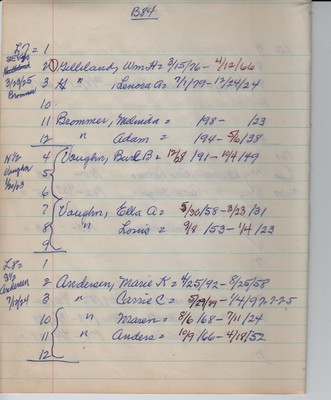 B84
L7 = 1
2 ① Gilliland, Wm H = 3/15/76 - 4/12/66
3/29/25 3 H " , Lenora A = 7/1/79 - 12/24/24
Brommer 10
11 Brommer, Melinda = 198 - /23
12 " Adam = 194 - 5/6/38
N 1/2 4 Vaughn, Burl B = 12/28/91 - 10/4/49
Vaughn 5
1/10/23 6
7 Vaughn, Ella A = 5/30/58 - 3/23/31
8 " Louis = 9/8/53 - 1/4/23
9
L8 = 1
S 1/2 2 Andersen, Marie K = 4/25/92 - 8/25/58
Andersen 3 " Carrie C = 5/29/99 - 1/4/97
7/12/24 10 " Maren = 8/6/68 - 7/11/24
11 " Anders = 10/9/66 - 4/18/52
12